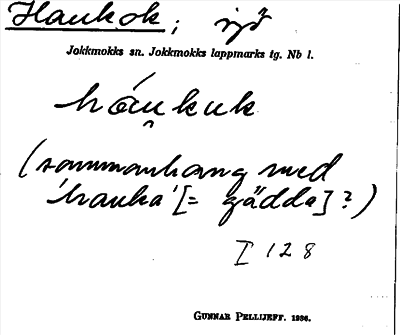 Haukok; sjö
Jokkmokks sn. Jokkmokks lappmarks tg. Nb l.
háu̯kuk
(sammanhang med
'hauka' [= gädda]?)
I 128
GUNNAR PELLIJEFF. 1936.